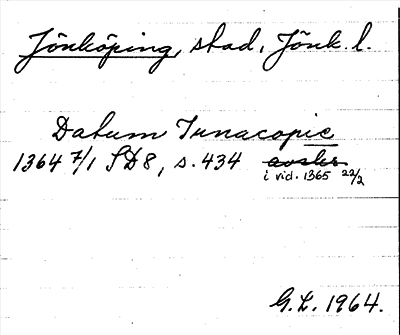 Jönköping, stad, Jönk. l.
Datum Junacopie
1364 7/1 SD8, s. 434 avskr.
i vid. 1365 22/2
G.L. 1964.